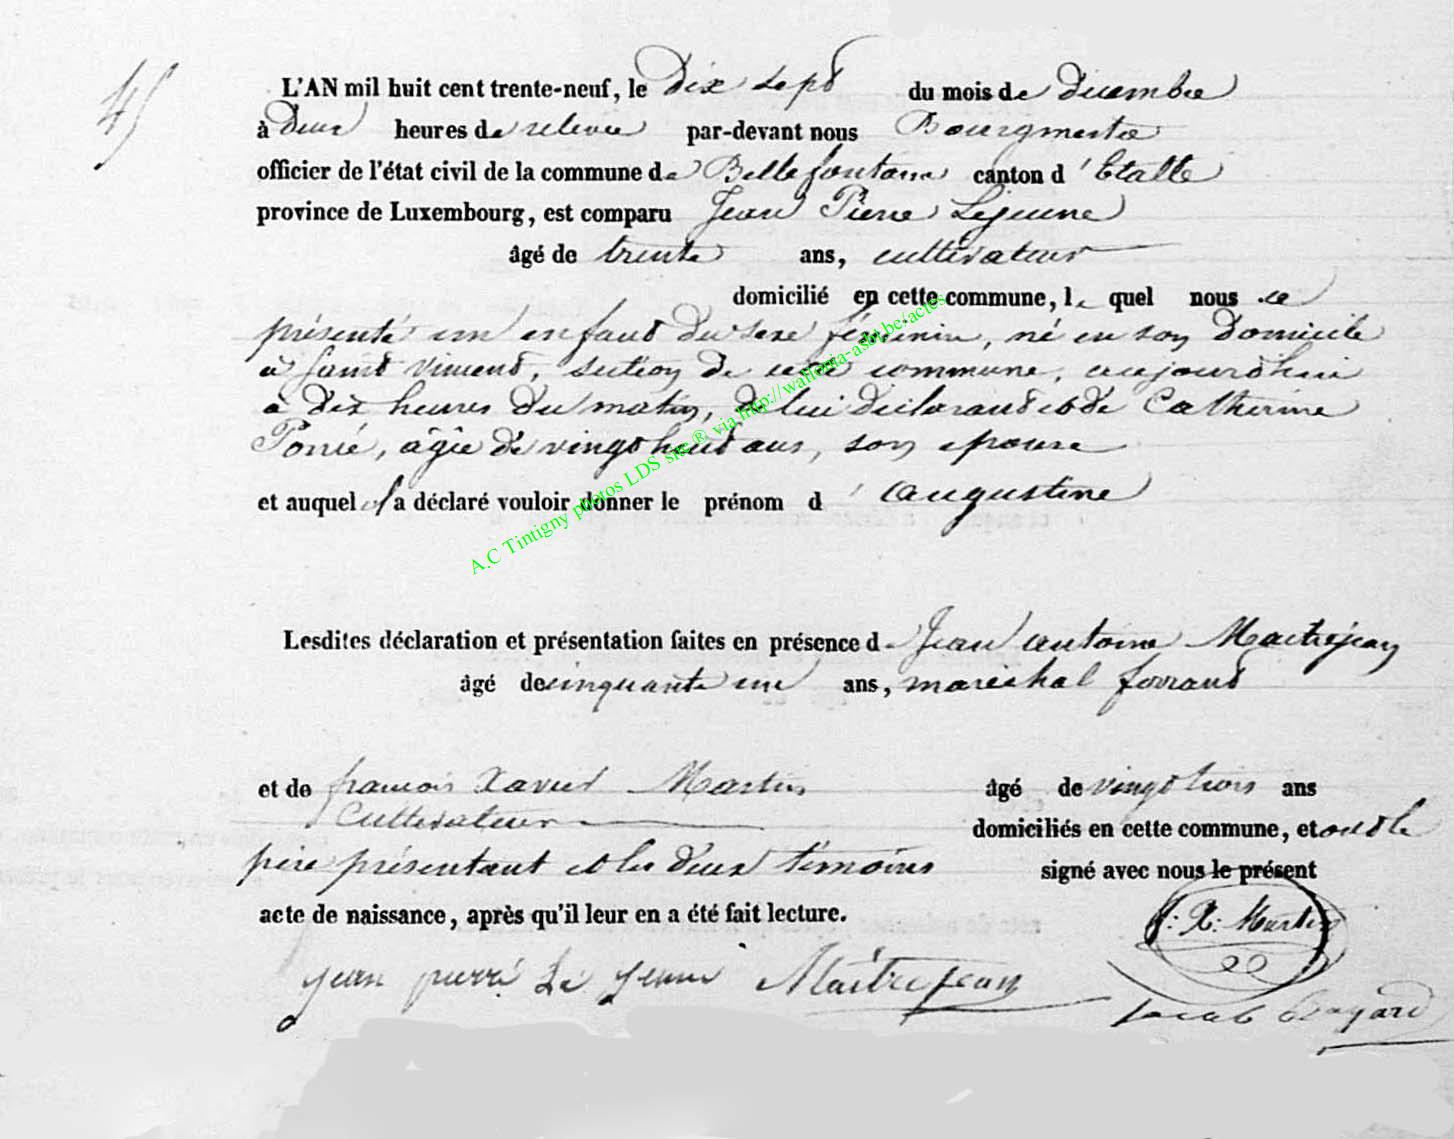 45
L'AN mil huit cent trente-neuf, le dix sept du mois de decembre
à deux heures de relevée par-devant nous Bourgmestre
officier de l'état civil de la commune de Bellefontaine canton d'Etalle
province de Luxembourg, est comparu Jean Pierre Lejeune
âgé de trente ans, cultivateur
domicilié en cette commune, lequel nous a
présenté un enfant du sexe féminin, né en son domicile
à Saint Vincent, section de cette commune, aujourd'hui
à dix heures du matin, de lui déclarant et de Catherine
âgée de vingt huit ans, son epouse
et auquel il a déclaré vouloir donner le prénom d'Augustine
Lesdites déclaration et présentation faites en présence de Jean antoine Maitrejean
âgé de cinquante un ans, maréchal ferrant
et de françois Xavier Martin âgé de vingt trois ans
Cultivateur domiciliés en cette commune, et ont le
père présentant et les deux témoins signé avec nous le présent
acte de naissance, après qu'il leur en a été fait lecture.
F: X: Martin
jean pierre Le jeune Maitrejean
Jacob
A.C Tintigny photos LDS site ® via http://wallonia-asbl.be/actes